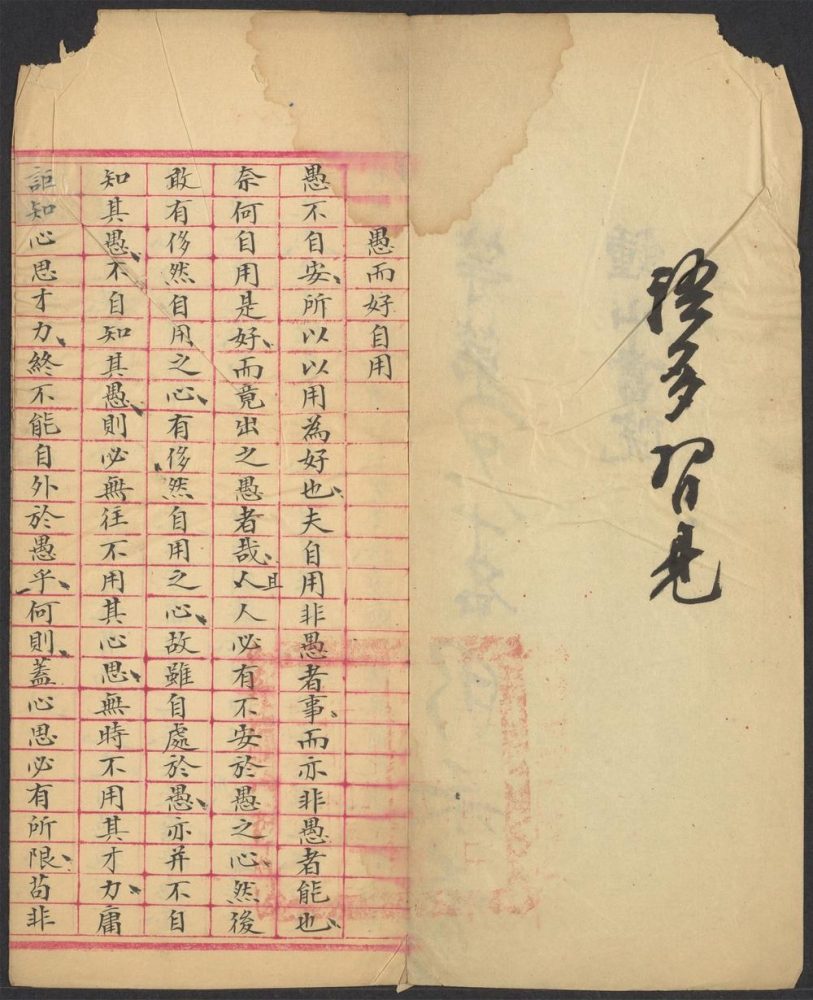 語多習見
愚而好自用
愚不自安、所以以用為好也、夫自用非愚者事、而亦非愚者能也、
奈何自用是好、而竟出之愚者哉、人且人必有不安於愚之心、然後
敢有侈然自用之心、有侈然自用之心、故雖自處於愚、亦并不自
知其愚、不自知其愚、則必無往不用其心思、無時不用其才力、庸
詎知心思才力、終不能自外於愚乎、何則、蓋心思必有所限、苟非